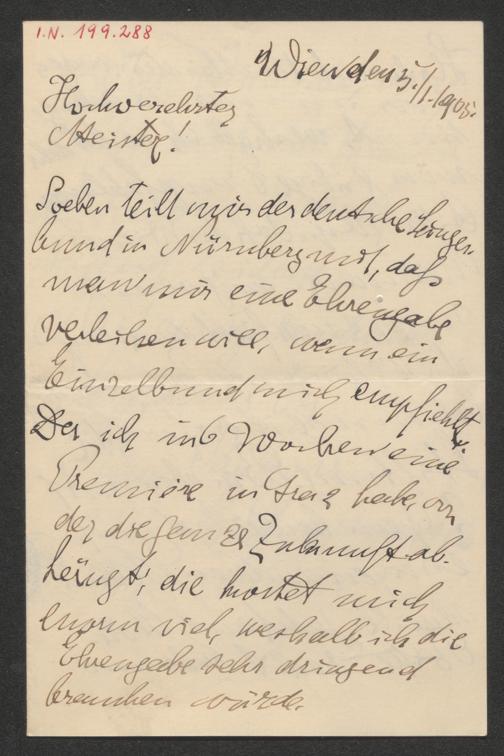 I.N. 199.288
Wien den 5./1. 1905.
Hochverehrter
Meister!
Soeben teilt mir der deutsche Sänger-
bund in Nürnberg mit, daß
man mir eine Ehrengabe
verleihen will, wenn ein
Einzelbund mich empfiehlt.
Da ich in 6 Wochen eine
Premiére in Graz habe, von
der die ganze Zukunft ab-
hängt, die kostet mich
enorm viel, weshalb ich die
Ehrengabe sehr dringend
brauchen würde.